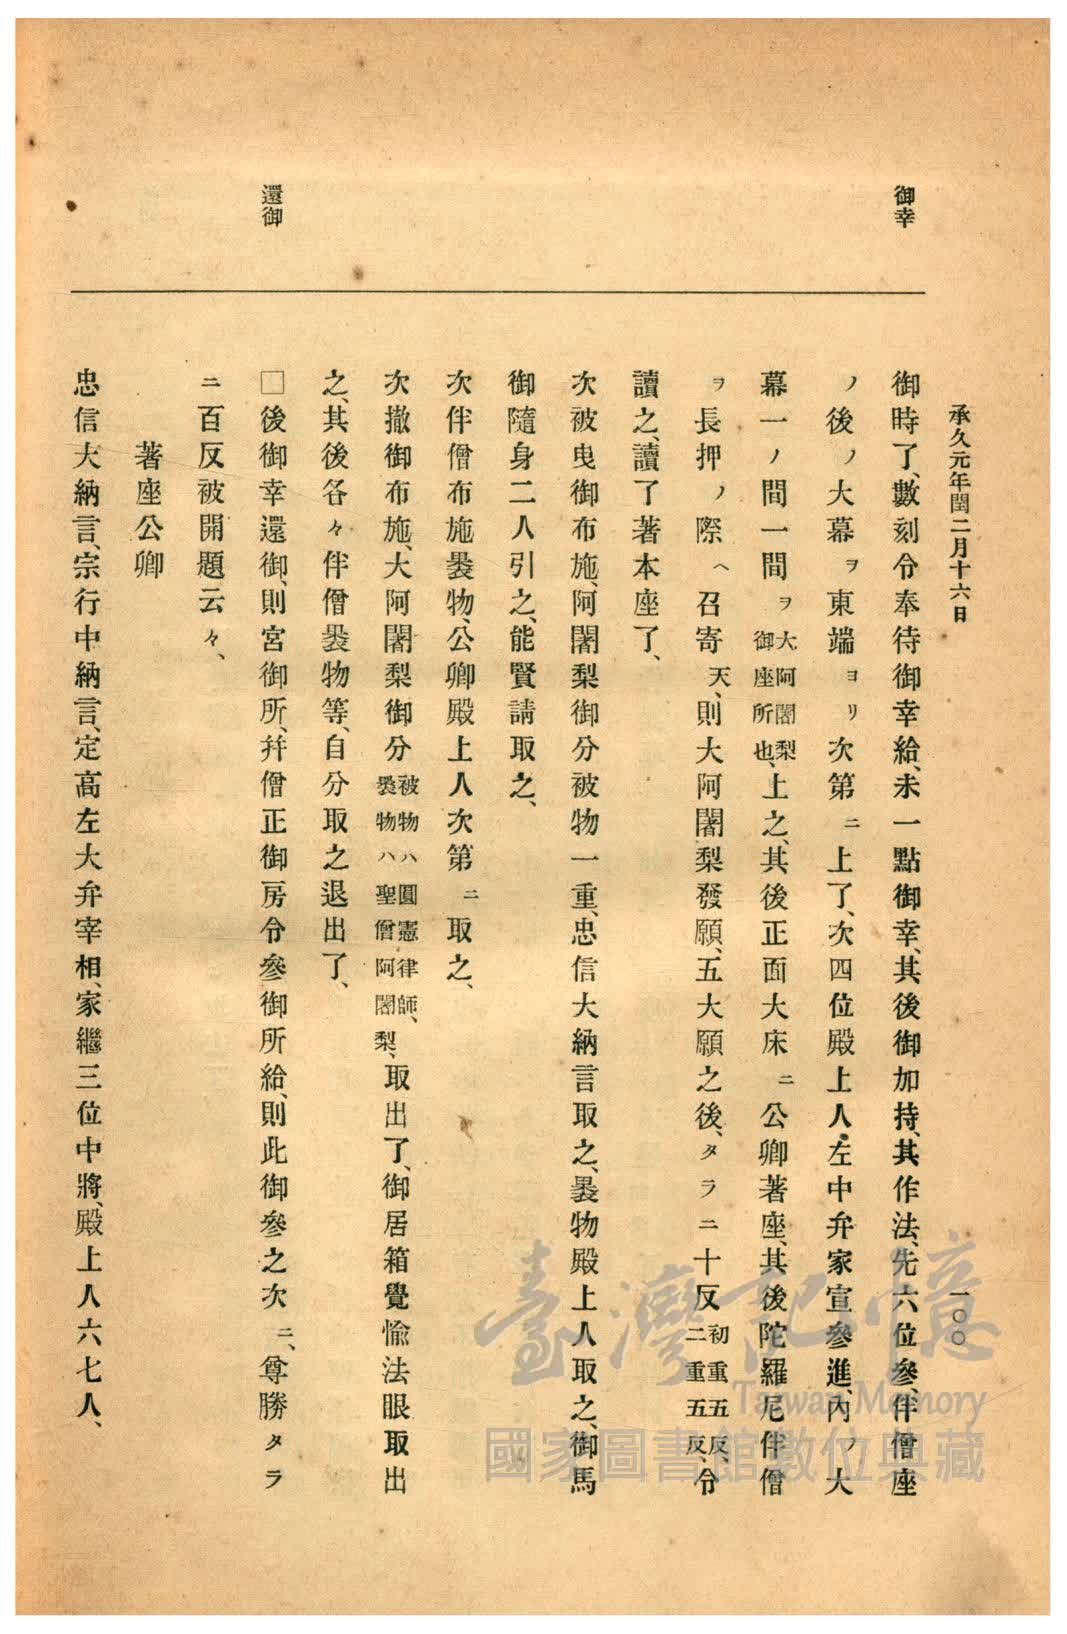 承久元年閏二月十六日
一〇〇
御幸
御時了、數刻令奉待御幸給、未一點御幸、其後御加持、其作法、先六位參、伴僧座
ノ後ノ大幕ヲ東端ヨリ次第ニ上了、次四位殿上人左中弁家宣參進、內ノ大
幕一ノ間一間ヲ大阿闍梨御座所也、上之、其後正面大床ニ公卿著座、其後陀羅尼伴僧
ヲ長押ノ際ヘ召寄天、則大阿闍梨發願、五大願之後、タラニ十反初重五反、二重五反、令
讀之、讀了著本座了、
次被曳御布施、阿闍梨御分被物一重、忠信大納言取之、褁物殿上人取之、御馬
御隨身二人引之、能賢請取之、
次伴僧布施褁物、公卿殿上人次第ニ取之、
次撤御布施、大阿闍梨御分被物ハ圓憲律師、褁物ハ聖僧阿闍梨、取出了、御居箱覺愉法眼取出
之、其後各々伴僧褁物等、自分取之退出了、
還御
□後御幸還御、則宮御所、幷僧正御房令參御所給、則此御參之次ニ、尊勝タラ
ニ百反被開題云々、
著座公卿
忠信大納言、宗行中納言、定高左大弁宰相、家繼三位中將、殿上人六七人、
臺灣記憶
Taiwan Memory
國家圖書館數位典藏